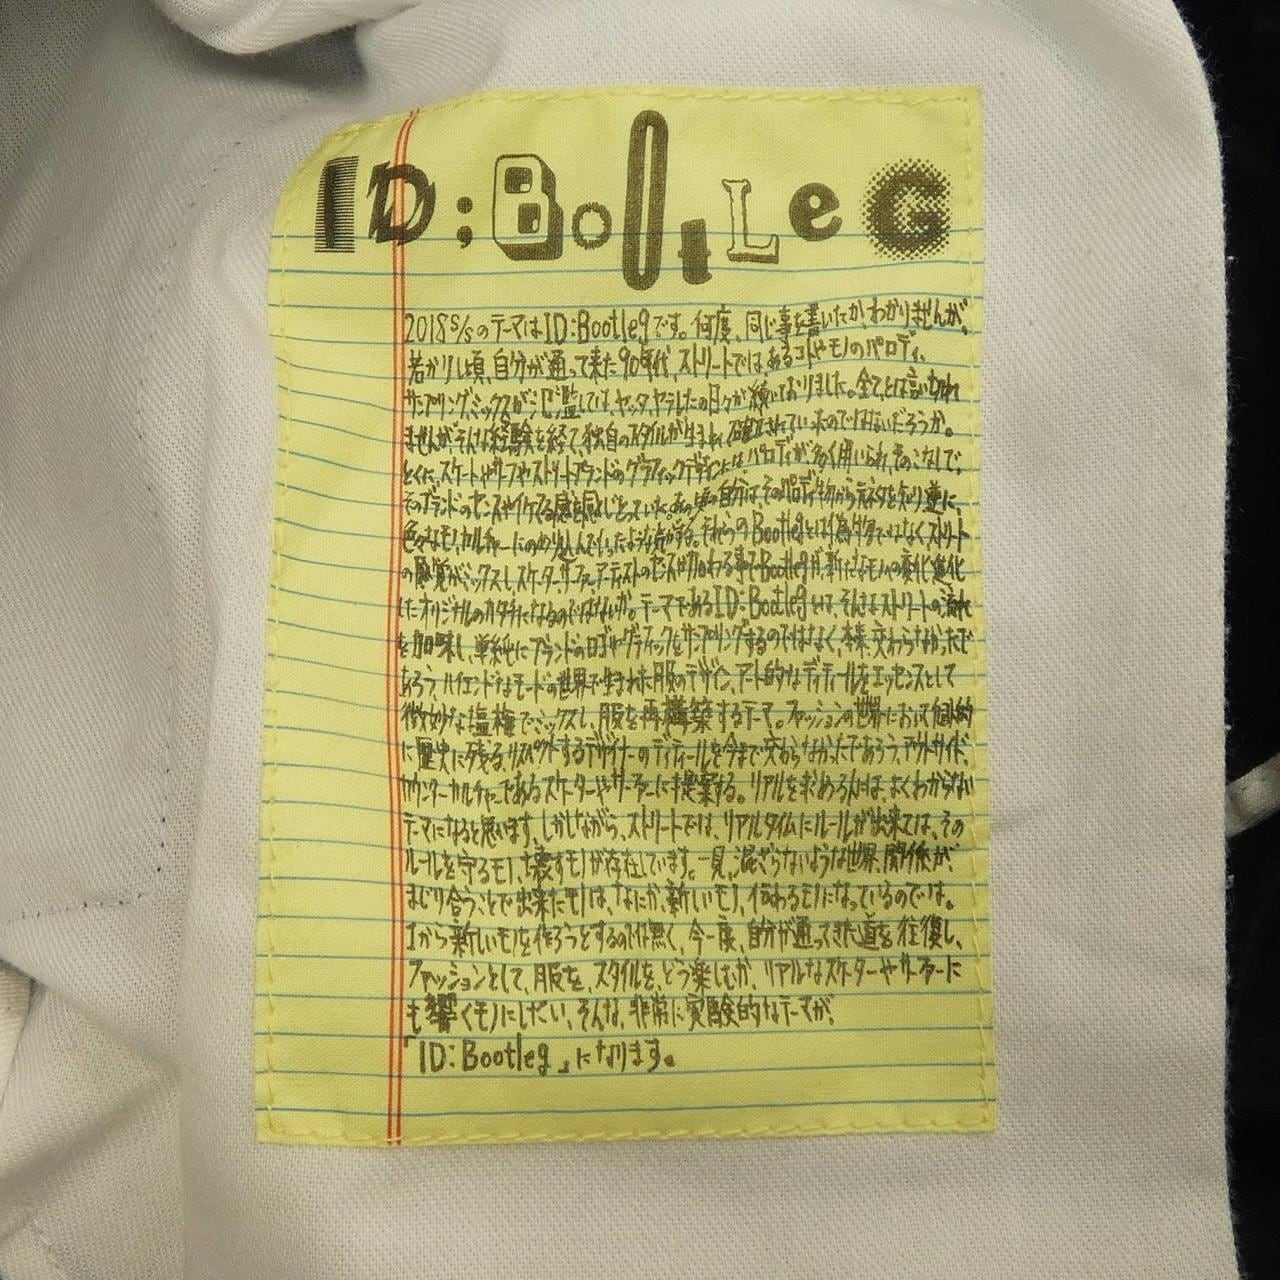 ID;BoOtLeG
2018s/sのテーマはID:Bootlegです。何度、同じ事を書いたか、わかりませんが、
若かりし頃、自分が通って来た90年代、ストリートでは、あるコトやモノのパロディ、
サンプリング、ミックスが氾濫しては、ヤッタ、ヤラレタの日々が続いておりました。全てとは言い切れ
ませんが、そんな経験を経て、独自のスタイルが生まれ、確立されていったのではないだろうか。
とくに、スケートやサーフやストリートブランドのグラフィックデザインには、パロディが多く用いられ、そのこなしで、
そのブランドのセンスやイケてる感を感じとっていた。あの頃の自分は、そのパロディ物から元ネタを知り、逆に、
色々なモノ、カルチャーにのめり込んでいったような気がする。それらのBootlegとは偽物ではなく、ストリート
の感覚がミックスし、スケーター、サーファー、アーティストのセンスが加わる事でBootlegが、新たなモノへの変化、進化
したオリジナルのカタチになるのではないか。テーマであるID:Bootlegとは、そんなストリートの流れ
を加味し、単純にブランドのロゴやグラフィックをサンプリングするのではなく、本来、交わらなかったで
あろう、ハイエンドなモードの世界で生まれた服のデザイン、アート的なディティールをエッセンスとして
微妙な塩梅でミックスし、服を再構築するテーマ。ファッションの世界において個人的
に歴史に残る、リスペクトするデザイナーのディティールを今まで交わらなかったであろう、アウトサイド、
カウンターカルチャーであるスケーターやサーファーに提案する。リアルを求める人には、よくわからない
テーマになると思います。しかしながら、ストリートでは、リアルタイムにルールが出来ては、その
ルールを守るモノ、壊すモノが存在しています。一見、混ざらないような世界、関係が、
まじり合うことで出来たモノは、なにか、新しいモノ、伝わるモノになっているのでは。
1から新しいモノを作ろうとするのでは無く、今一度、自分が通ってきた道を往復し、
ファッションとして、服を、スタイルを、どう楽しむか、リアルなスケーターやサーファーに
も響くモノにしたい、そんな、非常に実験的なテーマが、
「ID:Bootleg」になります。